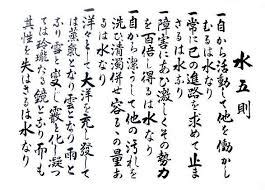 水五則
一自から活動して他を働かし
むるは水なり
一常に己の進路を求めて止ま
ざるは水なり
一障害にあひ激しくその勢力
を百倍し得るは水なり
一自から潔うして他の汚れを
洗ひ清濁併せ容るゝの量あ
るは水なり
一洋々として大洋を充し發して
は蒸氣となり雲となり雨と
なり雪と變じ霰と化し凝つ
ては玲瓏たる鏡となり而も
其性を失はざるは水なり